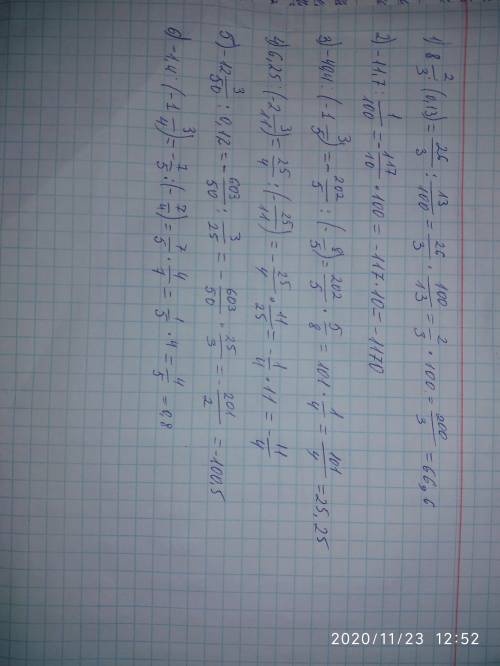 1) 8 2/3 : (0,13) = 26/3 : 13/100 = 26/3 · 100/13 = 2/3 · 100 = 200/3 = 66,6
2) -11,7 : 1/100 = -117/10 · 100 = -117 · 10 = -1170
3) -40,4 : (-1 3/5) = -202/5 : (-8/5) = 202/5 · 5/8 = 101 · 1/4 = 101/4 = 25,25
4) 6,25 : (-2 3/11) = 25/4 : (-25/11) = -25/4 · 11/25 = -1/4 · 11 = -11/4
5) -12 3/50 : 0,12 = -603/50 : 3/25 = -603/50 · 25/3 = -201/2 = -100,5
6) -1,4 : (-1 3/4) = -7/5 : (-7/4) = 7/5 · 4/7 = 1/5 · 4 = 4/5 = 0,8
2020/11/23 12:52